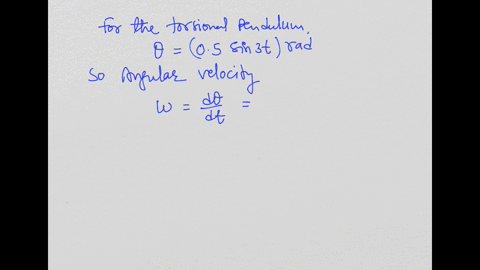 For the torsional Pendulum,
θ = (0.5 sin 3t) rad
So Angular velocity
ω = dθ/dt =